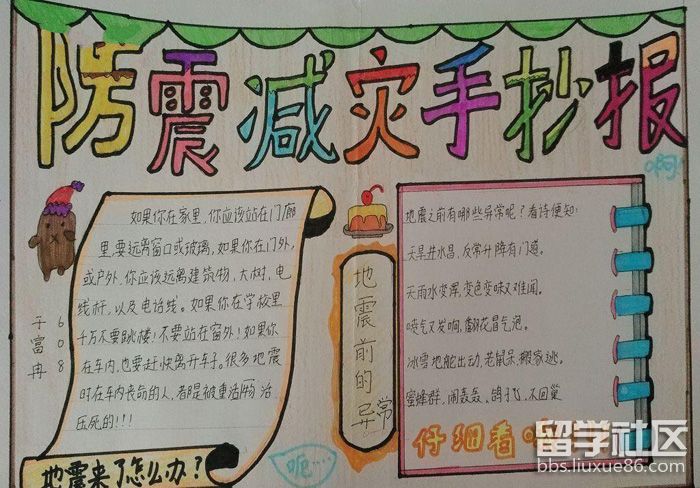 防震减灾手抄报
啊
如果你在家里,你应该站在门廊
里,要远离窗口或玻璃,如果你在门外,
或户外,你应该远离建筑物,大树,电
线杆,以及电话线。如果你在学校里
千万不要跳楼!不要站在窗外!如果你
在车内,也要赶快离开车子。很多地震
时在车内丧命的人,都是被重活物 活
压死的!!!
于富冉
608
地震来了怎么办?
呃…
地震前的异常
地震之前有哪些异常呢?看诗便知:
天旱井水冒,反常升降有门道。
天雨水变浑,变色变味又难闻。
喷气又发响,翻花冒气泡。
冰雪地蛇出动,老鼠呆,搬家逃。
蜜蜂群,闹轰轰。鸽子飞,不回巢
仔细看
留学社区
bbs.liuxue86.com